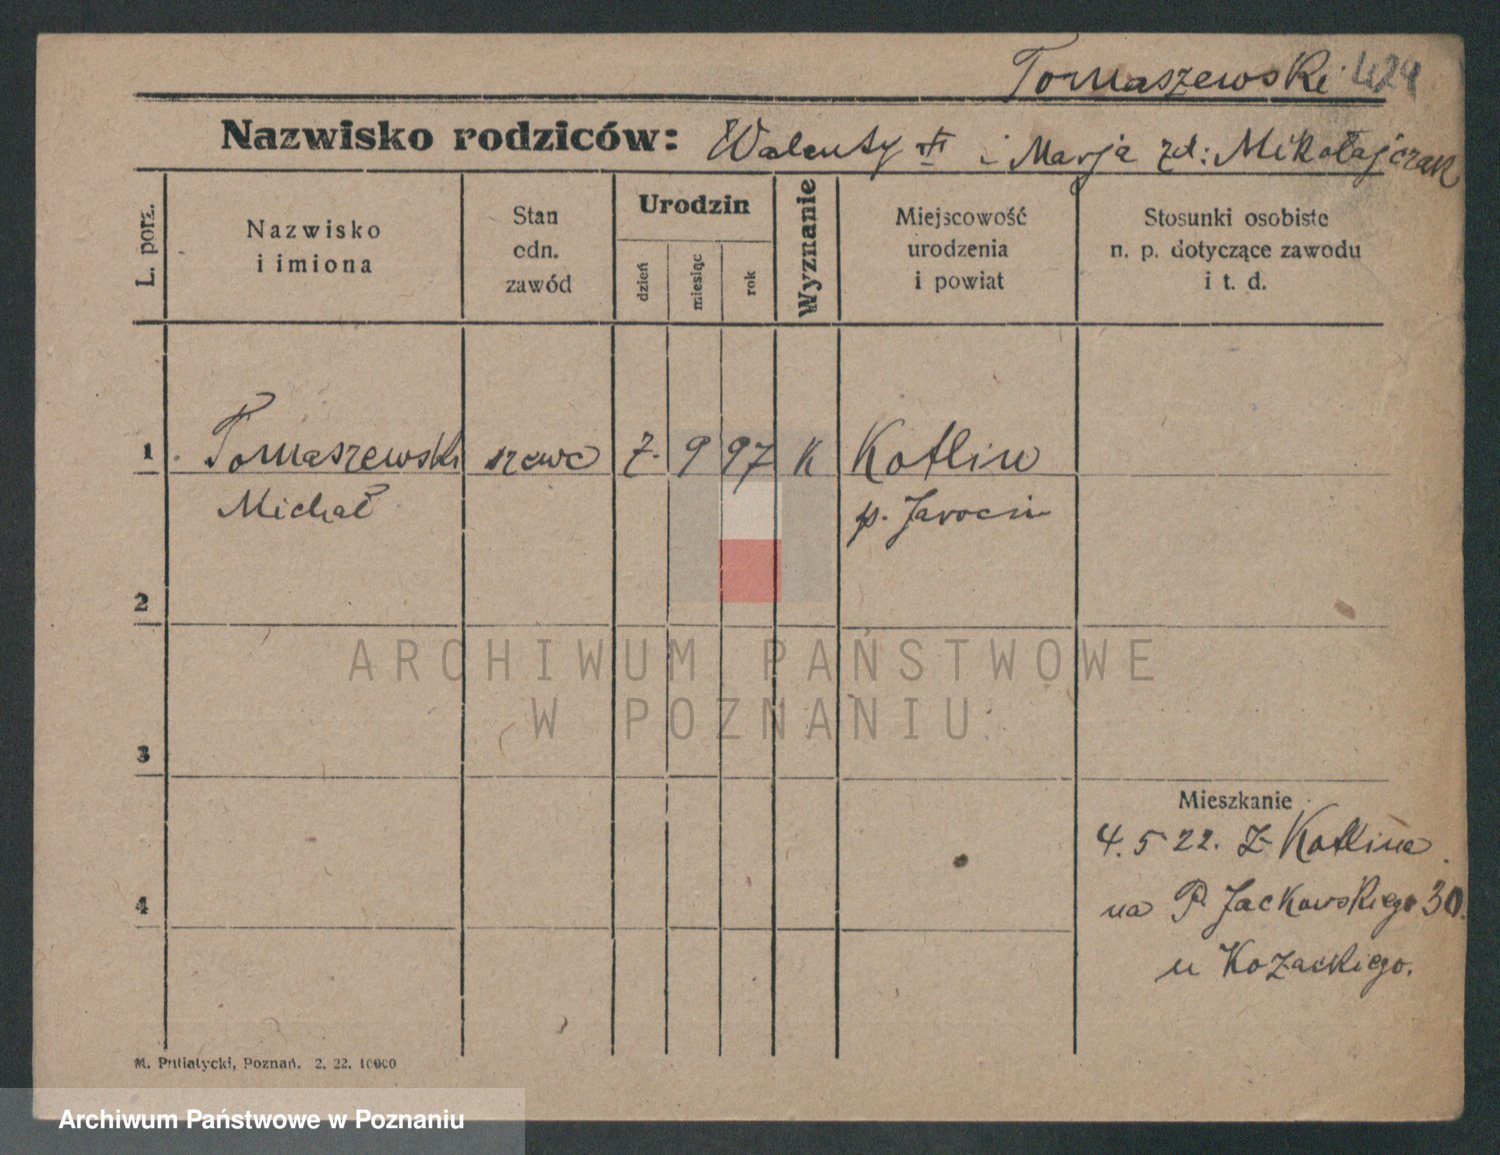 Tomaszewski 429
Nazwisko rodziców: Walenty i Marja zd: Mikołajczak
L. porz.
Nazwisko
i imiona
Stan
odn.
zawód
Urodzin
dzień
miesiąc
rok
Wyznanie
Miejscowość
urodzenia
i powiat
Stosunki osobiste
n. p. dotyczące zawodu
i t. d.
1 Tomaszewski szewc 7. 9 97 K Kotlin
Michał p. Jarocin
2
ARCHIWUM PAŃSTWOWE
W POZNANIU
3
Mieszkanie
4. 5 22. z Kotlina
4
na P. Jackowskiego 30.
u Kozackiego.
M. Putiatycki, Poznań. 2. 22. 10000
Archiwum Państwowe w Poznaniu